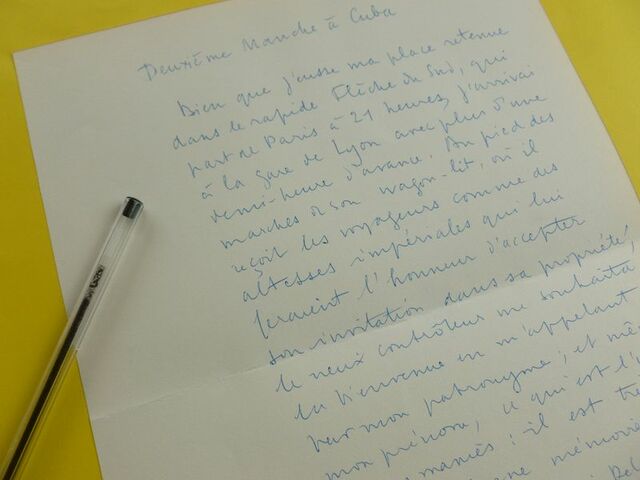 Deuxième Manche à Cuba
Bien que j'eusse ma place retenue
dans le rapide Flèche du Sud, qui
part de Paris à 21 heures, j'arrivai
à la gare de Lyon avec plus d'une
demi-heure d'avance. Au pied des
marches de son wagon-lit, où il
reçoit les voyageurs comme des
altesses impériales qui lui
feraient l'honneur d'accepter
son invitation dans sa propriété,
le vieux contrôleur me souhaita
la bienvenue en m'appelant
par mon patronyme ; et mê
mon prénom, ce qui est l'
maniés : il est tr
mémoire